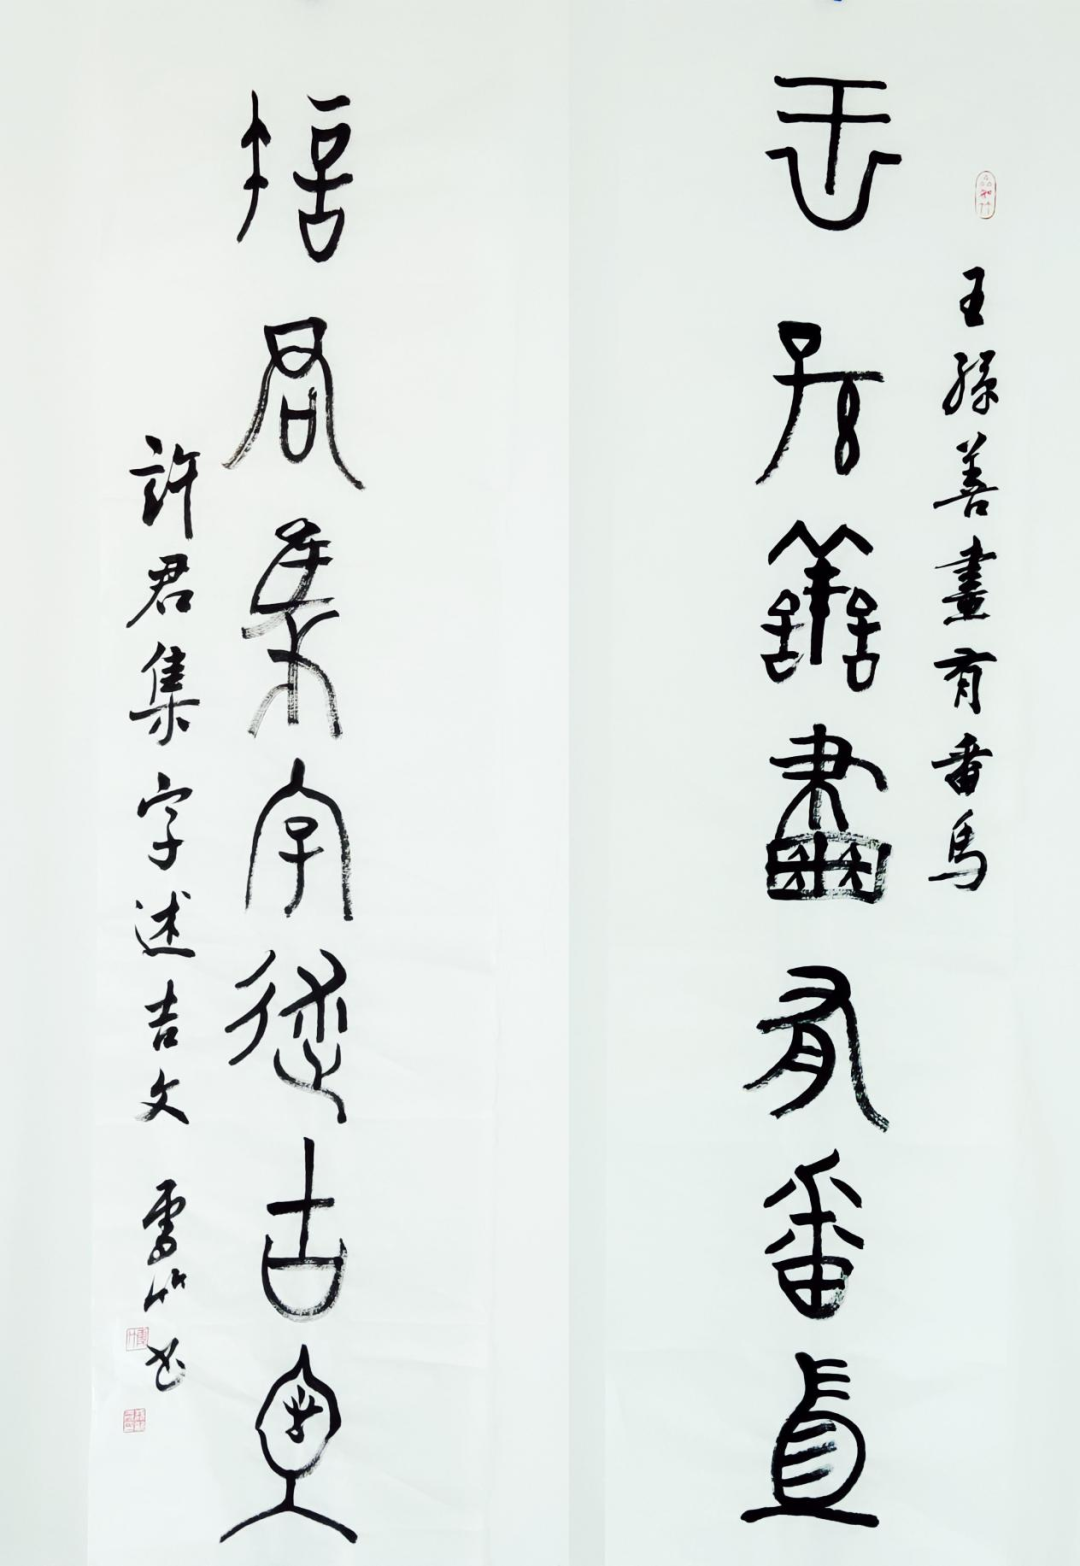 王孫善畫有番馬
王孫善畫有番馬
許君集字述吉文
許君集字述吉文 雪竹书